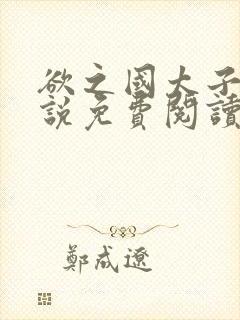 欲之國大子
說免費閱讀
鄭成遼